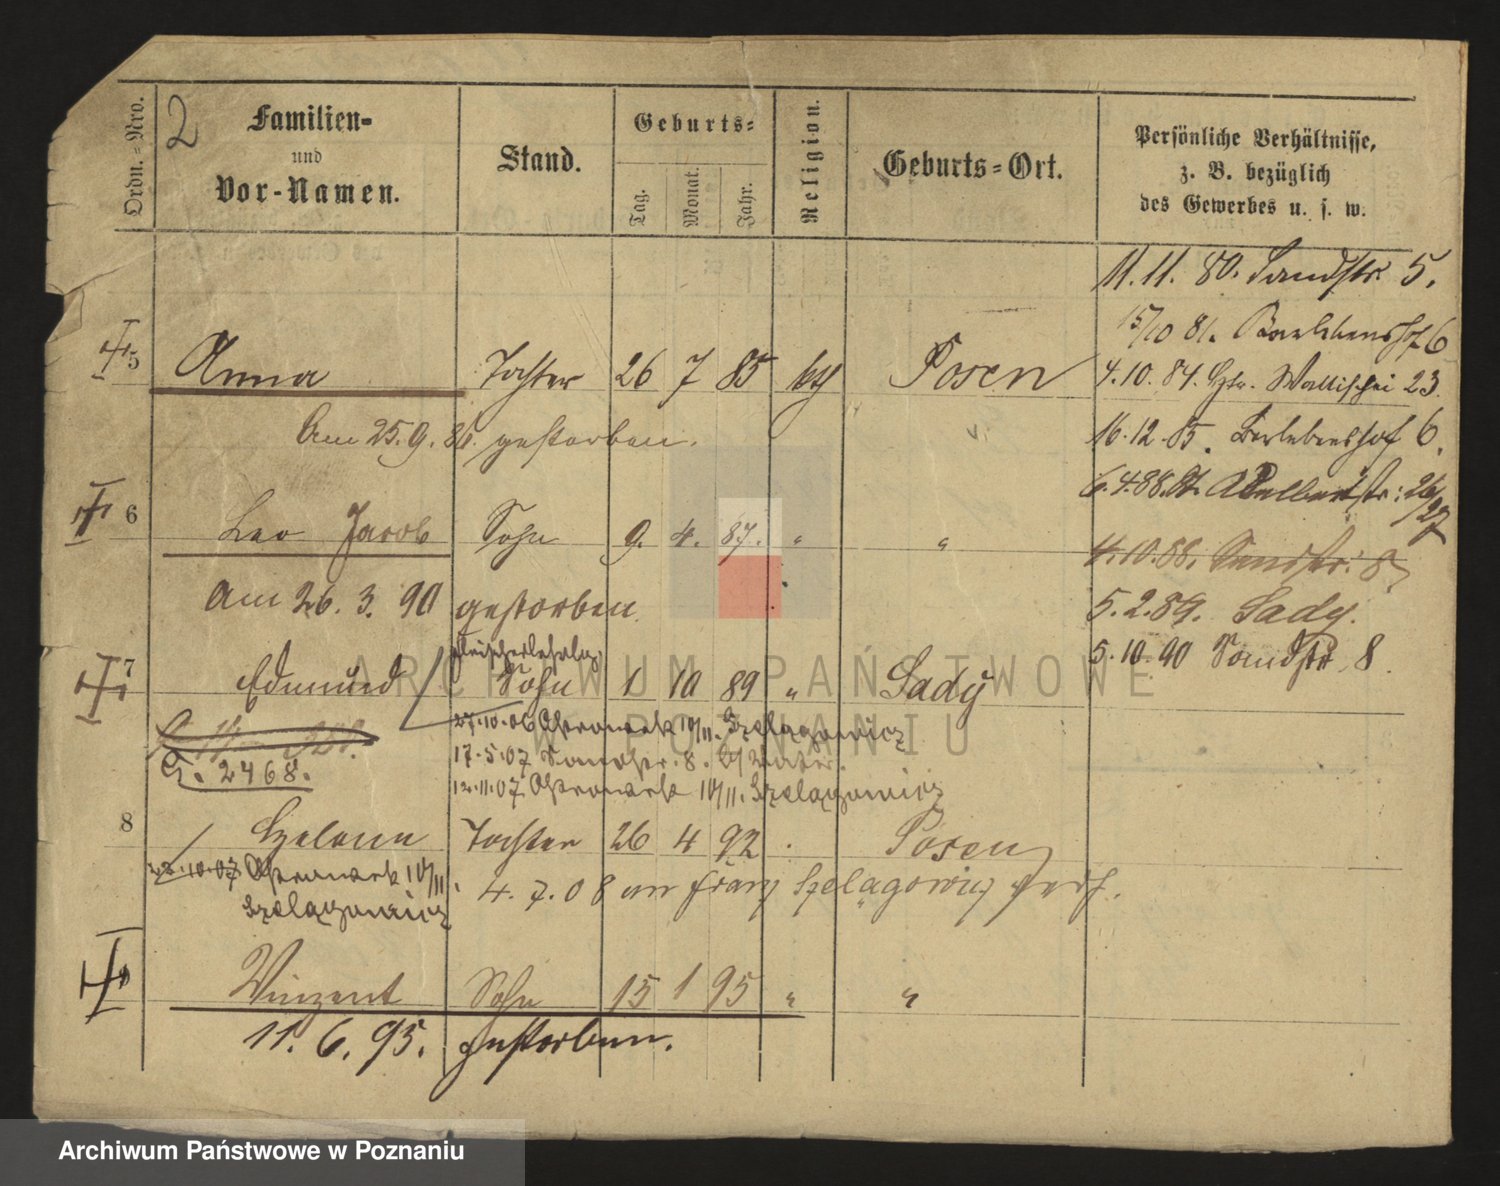 Ordn.=Nro.
2
Familien=
und
Vor-Namen.
Stand.
Geburts=
Tag.
Monat.
Jahr.
Religion.
Geburts=Ort.
Persönliche Verhältnisse,
z. B. bezüglich
des Gewerbes u. s. w.
11.11. 80. Sandstr. 5.
15/10 81. Berlebenshof 6
5 Anna Tochter 26 7 85 kth Posen
4.10. 84. Wallischei 23.
Am 25.9.86. gestorben.
16.12.85. Berlebenshof 6.
6.4.88. St. Adalbertstr: 26/27
6 Leo Jacob Sohn 9. 4. 87. " "
4.10.88. Sandstr. 8
Am 26. 3. 90 gestorben.
5.2.89. Sady.
Fleischerlehrlg.
5.10.90 Sandstr. 8.
7 Edmund Sohn 1 10 89 " Sady
27.10.06 Ostrowek 10/11. Szelagowicz
17.5.07 Sandstr. 8. b/ Vater.
G. 2468.
12.11.07 Ostrowek 10/11. Szelagowicz
8 Helene Tochter 26 4 92 . Posen
22.10.07 Ostrowek 10/11.
Szelagowicz
4.7.08 an Franz Szelągowicz verh.
9 Vinzent Sohn 15 1 95 " "
11. 6. 95. gestorben.
ARCHIWUM PAŃSTWOWE
W POZNANIU
Archiwum Państwowe w Poznaniu